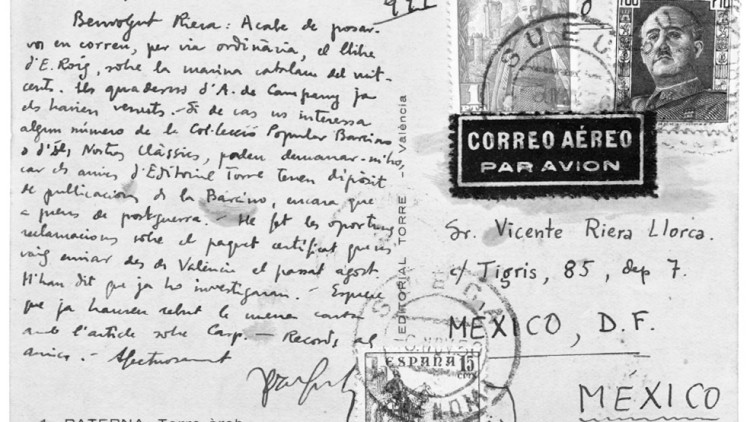 Benvolgut Riera: Acabe de posar-
vos en correu, per via ordinària, el llibre
d'E. Roig, sobre la marina catalana del vuit-
cents. Els quaderns d'A. de Campany ja
els havien venuts. - Si de cas us interessa
algun número de la Col·lecció Popular Barcino
o d'Els Nostres Clàssics, podeu demanar-m'ho,
car els amics d'Editorial Torre tenen dipòsit
de publicacions de la Barcino, encara que
a preus de postguerra. - He fet les oportunes
reclamacions sobre el paquet certificat que us
vaig enviar des de València el passat agost.
M'han dit que ja ho investiguen. - Espere
que ja haureu rebut la meua carta
amb l'article sobre Carp. - Records als
amics. - Afectuosament
EDITORIAL TORRE - València
CORREO AÉREO
PAR AVION
Sr. Vicente Riera Llorca.
c/ Tigris, 85, dep 7.
MEXICO, D.F.
MÉXICO
SUECA
ESPAÑA 15
CTS
PATERNA